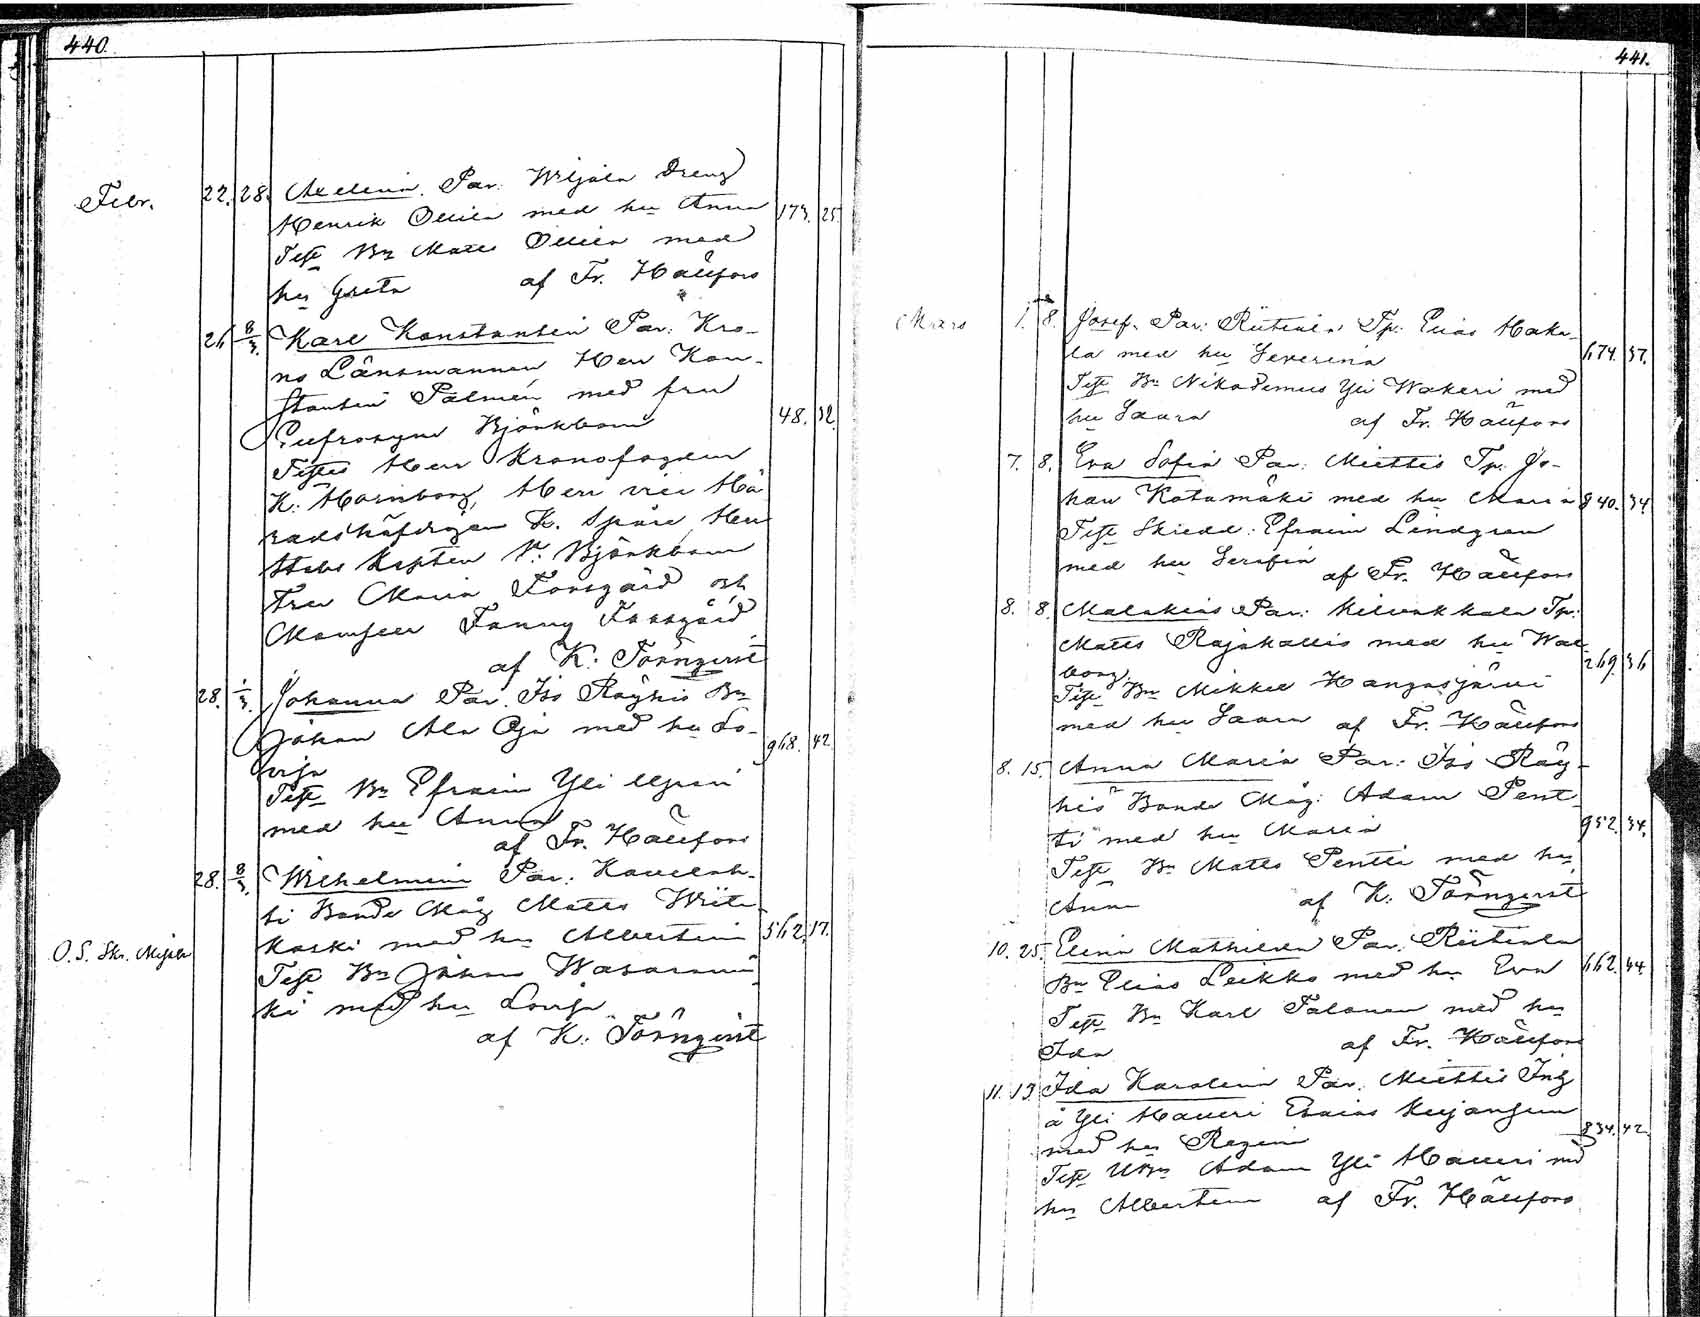 440.
Febr. 22. 28. Axelina. Par: Wiljala Dreng
Henrik Ollila med hu Anna 173. 25.
Test Bn Matts Ollila med
hu Greta af Fr. Hällfors
26 8/3. Karl Konstantin Par: Kro-
no Länsmannen Herr Kon-
stantin Palmén med fru
Eufrosyne Björkbom 48. 32.
Testes Herr Kronofogden
K. Hornborg, Herr vice Hä
radshöfdingen K. Spåre Herr
Stabs Kapten V. Björkbom
Fru Maria Forsgård och
Mamsell Fanny Forsgård
af K: Törnqvist
28. 1/3. Johanna Par. Iso Röyhiö Bn
Johan Ala Oja med hu Lo- 968. 42
visa
Test Bn Efraim Yli
med hu Anna
af Fr. Hällfors
28. 8/3. Wilhelmina Par: Kauelah-
ti Bonde Måg Matts
kaski med hu Albertina 562. 17.
O. S. Skr.
Test Bn Johan
ki med hu Lovisa
af K: Törnqvist
441.
Mars 1. 8. Josef. Par: Riitiala Tp: Elias Make-
la med hu Severina 674. 37.
Test Bn Nikodemus Yli Wakeri med
hu Saara af Fr. Hällfors
7. 8. Eva Sofia Par: Miettis Tp: Jo-
han Katamäki med hu Maria 840. 34
Test Skredd: Efraim Lindgren
med hu Serafia af Fr. Hällfors
8. 8. Malakias Par: Kilvakkala Tp:
Matts Rajakallio med hu Wal- 269. 36
borg.
Test Bn Mikkel Kangasjärvi
med hu Saara af Fr. Hällfors
8. 15. Anna Maria Par: Iso Röy-
hiö Bonde Måg: Adam Pent-
ti med hu Maria 952. 34.
Test Bn Matts Pentti med hu
Anna af K: Törnqvist
10. 25. Elina Mathilda Par: Riitiala
Bn Elias Leikko med hu Eva 662. 44.
Test Bn Karl Talonen med hu
Ida af Fr. Hällfors
11. 13. Ida Karolina Par: Miettis Inh
å Yli Haueri Esaias Kujanpun
med hu Regina 834. 42.
Test UBn Adam Yli Haueri md
hu Albertina af Fr. Hällfors